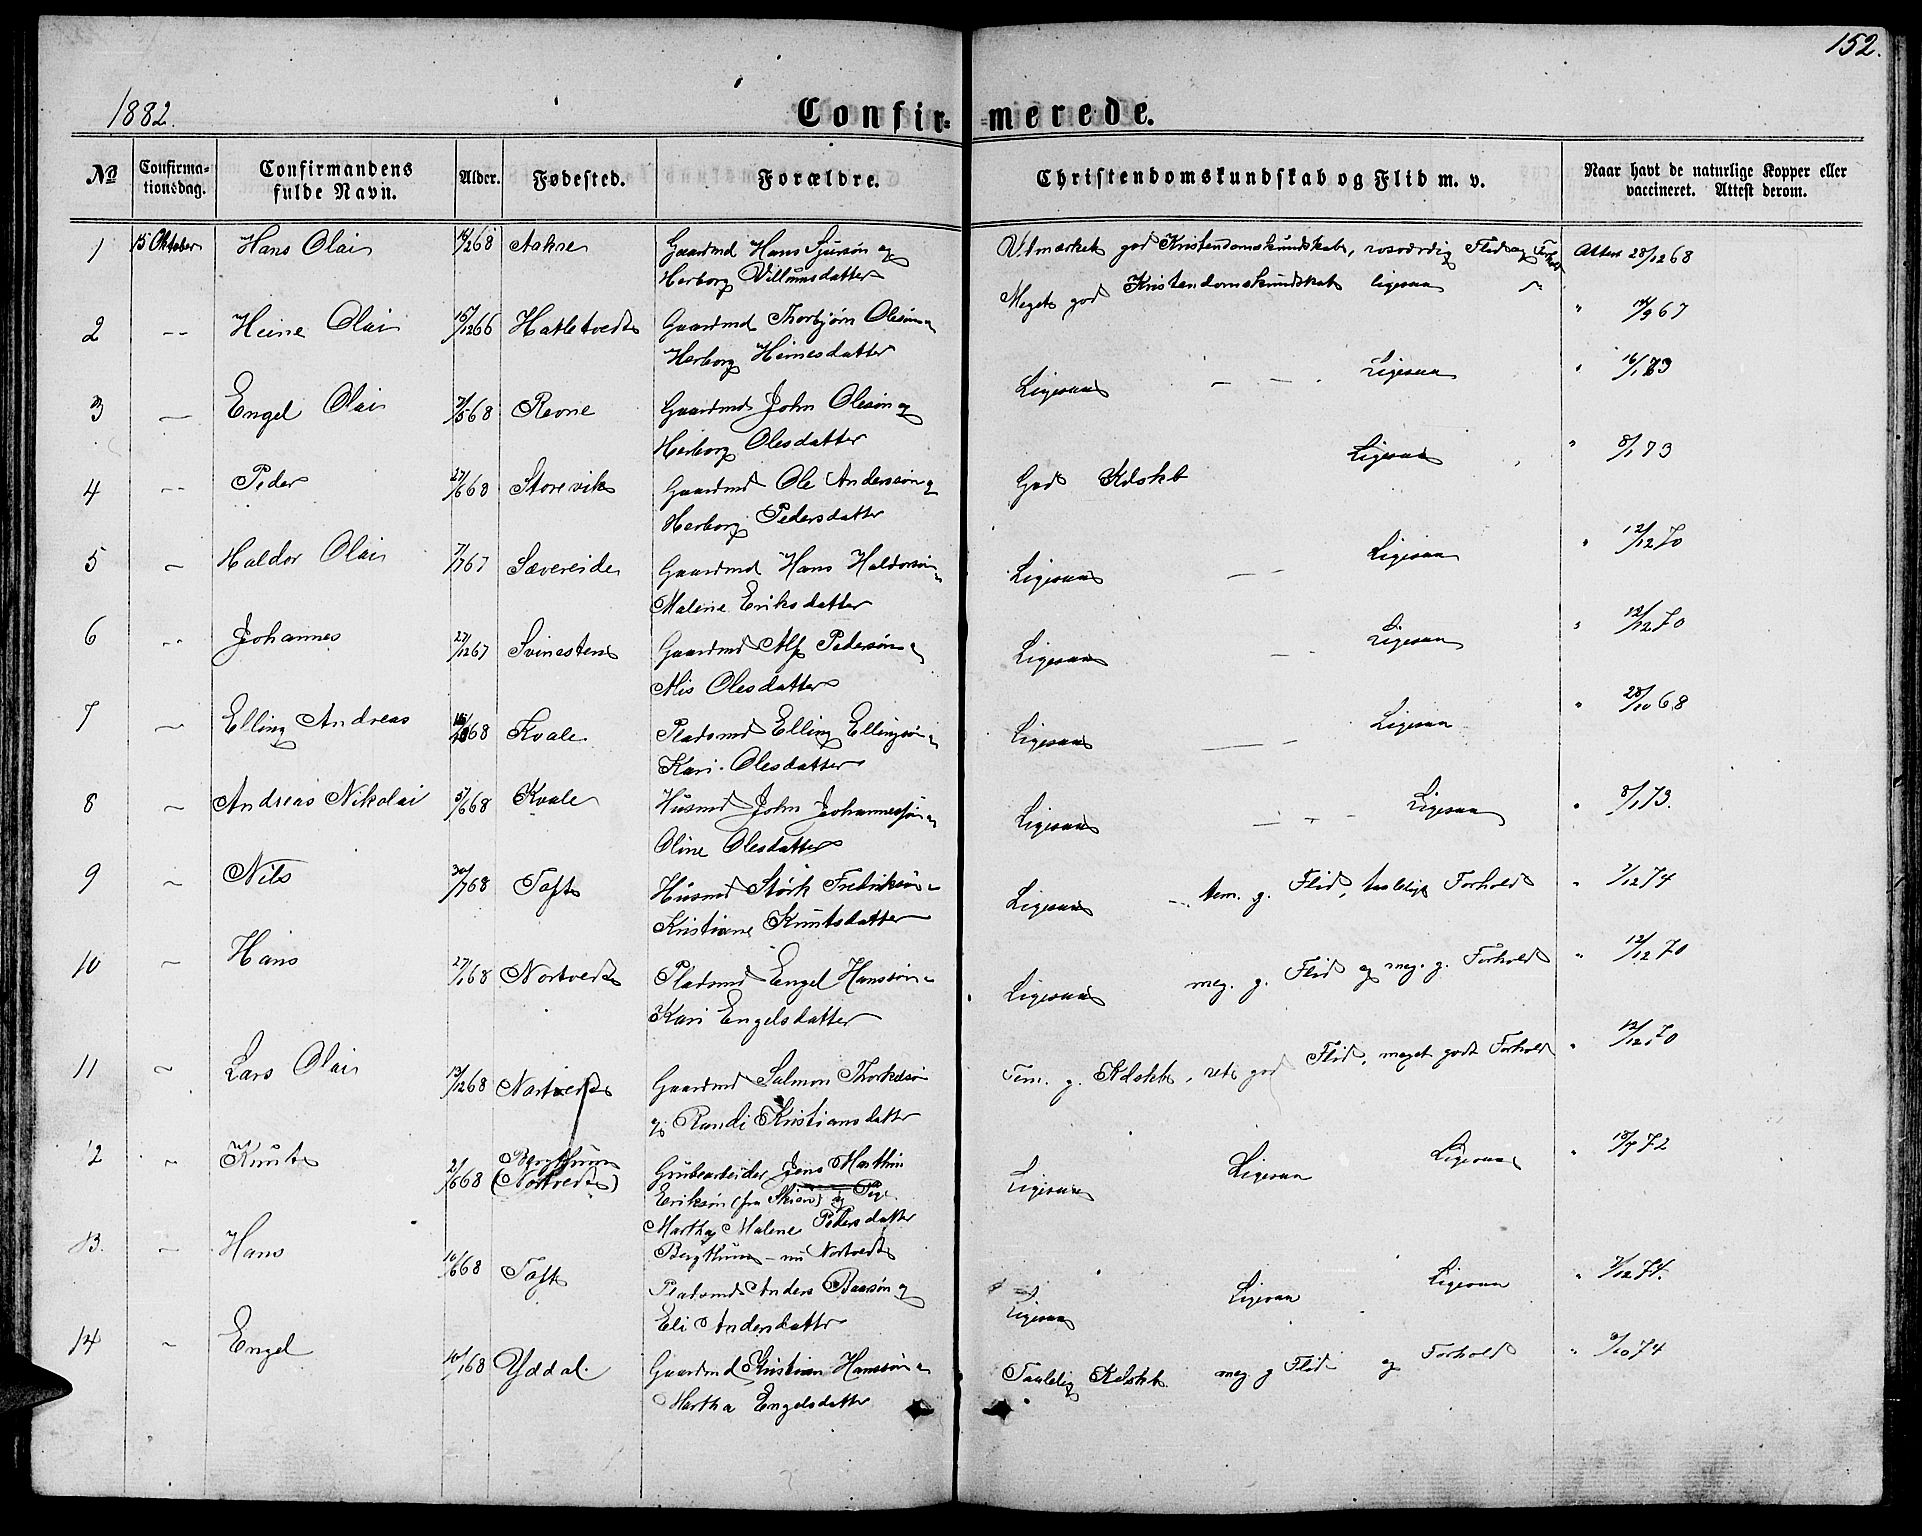 152.
1882.
Confirmerede.
No Confirmationsdag. Confirmandens fulde Navn. Alder. Fødested. Forældre. Christendomskundskab og Flid m. v. Naar havt de naturlige Kopper eller vaccineret. Attest derom.
1 15 Oktober Hans Olai /268 Aakre Gaardmd Hans Sjursøn og Udmærket god Kristendomskundskab, rosværdig Flid og Forhold Attest 28/12 68
Herborg Villumsdatter
2 -- Heine Olai 15/12 66 Hatletvedt Gaardmd Thorbjørn Olesøn og Meget god Kristendomskundskab ligesaa " /9 67
Herborg Heinesdatter
3 — Engel Olai /5 68 Revne Gaardmd John Olesøn og Ligesaa — — Ligesaa " 16/1 73
Herborg Olesdatter
4 -- Peder 27/6 68 Storevik Gaardmd Ole Anderssøn og God Kdskb Ligesaa " 8/1 73
Herborg Pedersdatter
5 — Haldor Olai 7/7 67 Sævereide Gaardmd Hans Haldorsøn Ligesaa — — Ligesaa " 12/12 70
Malene Eriksdatter
6 -- Johannes 27/12 67 Svinesten Gaardmd Alf Pedersøn og Ligesaa — — Ligesaa " 12/12 70
Mis Olesdatter
7 — Elling Andreas 68 Kvale Pladsmd Elling Ellingsøn Ligesaa — — Ligesaa " 28/10 68
Kari Olesdatter
8 — Andreas Nikolai 5/6 68 Kvale Husmd John Johannessøn Ligesaa — — — Ligesaa " 8/1 73.
Oline Olesdatter
9 — Nils 30/7 68 Toft Husmd Størk Fredriksøn Ligesaa — tem. g. Flid, taalelig Forhold " 2/12 74
Kristiane Knutsdatter
10 — Hans 27/1 68 Nortvedt Pladsmd Engel Hanssøn Ligesaa meg. g. Flid og meg. g. Forhold " 12/12 70
Kari Engelsdatter
11 — Lars Olai 13/12 68 Nortvedt Gaardmd Salmon Thorkelsøn Tem. g. Kdskb, ret god Flid, meget godt Forhold " 12/12 70
og Randi Kristiansdatter
12 " Knut 2/6 68 Bergthun Grubearbeider Jens Marthin Ligesaa Ligesaa Ligesaa " 18/7 72
(Nortvedt) Eriksøn (fra Skien) og Pige
Martha Malene Pedersdatter
Bergthun - nu Nortvedt
13. — Hans 10/6 68 Toft Pladsmd Anders Baarsøn og Ligesaa Ligesaa Ligesaa " 2/12 74.
Eli Andersdatter
14 " Engel 10/1 68 Yddal. Gaardmd Kristian Hanssøn Taalelig Kdskb. meg g Flid og Forhold " /10 74
Martha Engelsdatter